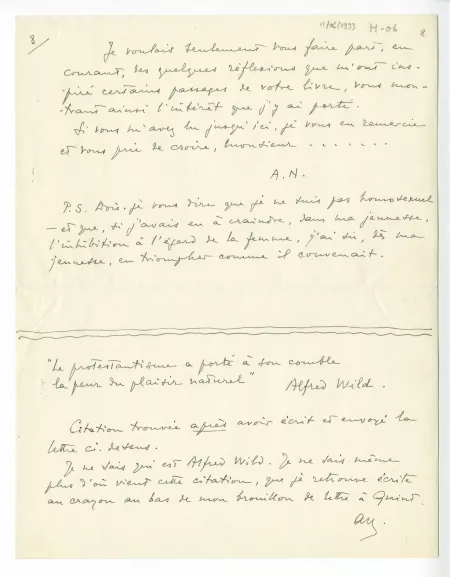 11/06/1933 H-06 8
8/
Je voulais seulement vous faire part, en
courant, des quelques réflexions que m'ont ins-
piré certains passages de votre livre, vous mon-
trant ainsi l'intérêt que j'y ai porté.
Si vous m'avez lu jusqu'ici, je vous en remercie
et vous prie de croire, Monsieur . . . . . . .
A.N.
P.S. Dois-je vous dire que je ne suis pas homosexuel
— et que, si j'avais eu à craindre, dans ma jeunesse,
l'inhibition à l'égard de la femme, j'ai su, dès ma
jeunesse, en triompher comme il convenait.
"Le protestantisme a porté à son comble
la peur du plaisir naturel" Alfred Wild.
Citation trouvée après avoir écrit et envoyé la
lettre ci-dessus.
Je ne sais qui est Alfred Wild. Je ne sais même
plus d'où vient cette citation, que je retrouve écrite
au crayon au bas de mon brouillon de lettre à Quint.